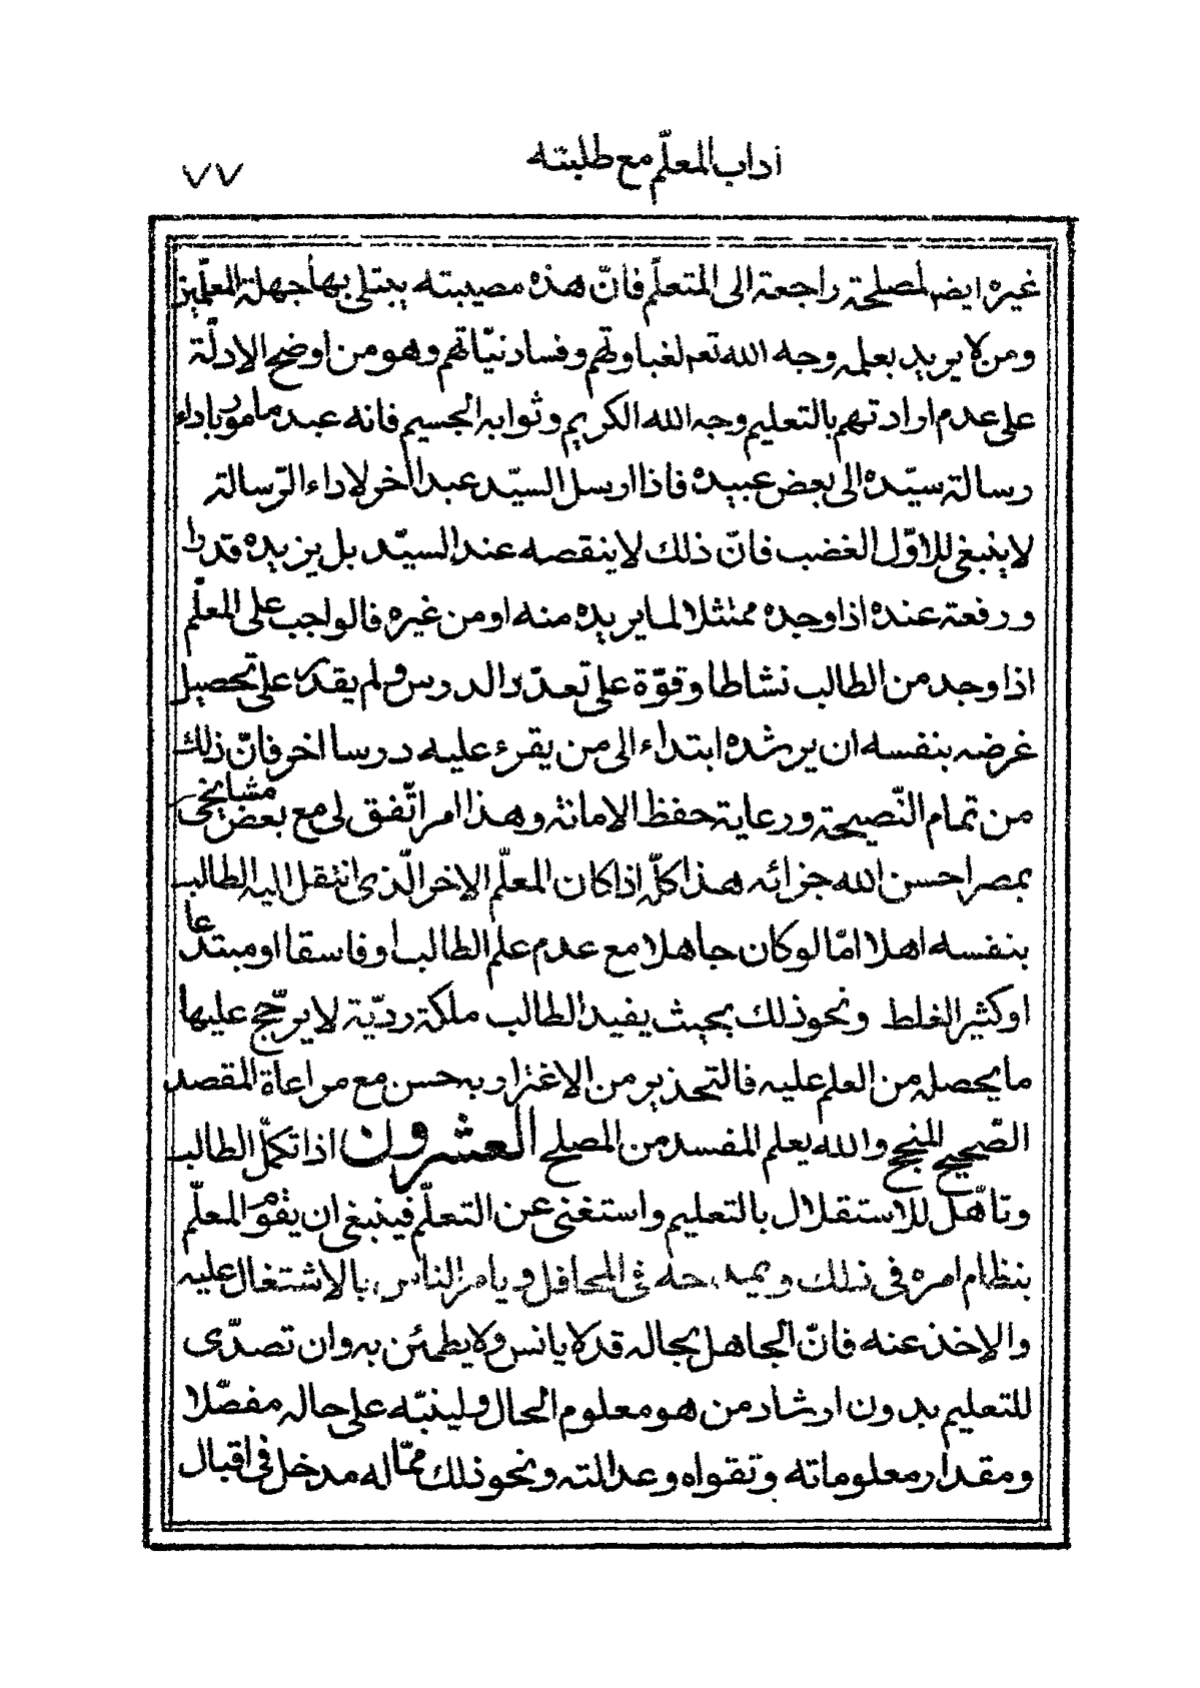 آداب المعلّم مع طلبته
٧٧
غيره ايضا لمصلحة راجعة الى المتعلّم فانّ هذه مصيبته يبتلى بها جهلة المعلّمين
ومن لا يريد بعلمه وجه الله تعم لغباوتهم وفساد نيّاتهم وهو من اوضح الادلّة
على عدم ارادتهم بالتعليم وجه الله الكريم وثوابه الجسيم فانه عبد مامور باداء
رسالة سيّده الى بعض عبيده فاذا ارسل السيّد عبدا اخر لاداء الرّسالة
لا ينبغى للاوّل الغضب فانّ ذلك لا ينقصه عند السيّد بل يزيده قدرا
ورفعة عنده اذا وجده ممتثلا لما يريده منه او من غيره فالواجب على المعلّم
اذا وجد من الطالب نشاطا وقوّة على تعدّد الدرس ولم يقدر على تحصيل
غرضه بنفسه ان يرشده ابتداء الى من يقرء عليه درسا اخر فانّ ذلك
من تمام النّصيحة ورعاية حفظ الامانة وهذا امر اتّفق لى مع بعض مشايخى
بمصر احسن الله جزائه هذا كلّه اذا كان المعلّم الاخر الّذى انتقل اليه الطالب
بنفسه اهلا امّا لو كان جاهلا مع عدم علم الطالب او فاسقا او مبتدعا
او كثير الغلط ونحو ذلك بحيث يفيد الطالب ملكة رديّة لا يرجّح عليها
ما يحصله من العلم عليه فالتحذير من الاغترار به حسن مع مراعاة المقصد
الصّحيح المنجح والله يعلم المفسد من المصلح العشرون اذا تكمّل الطالب
وتاهّل للاستقلال بالتعليم واستغنى عن التعلّم فينبغى ان يقوم المعلّم
بنظام امره فى ذلك ويمدحه فى المحافل ويامر الناس بالاشتغال عليه
والاخذ عنه فانّ الجاهل بحاله قد لا يانس ولا يطمئن به وان تصدّى
للتعليم بدون ارشاد من هو معلوم الحال ولينبّه على حاله مفصّلا
ومقدار معلوماته وتقواه وعدالته ونحو ذلك ممّا له مدخل فى اقبال